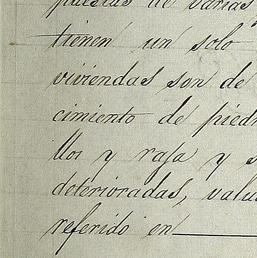 puestas de varias
tienen un solo
viviendas son de
cimiento de pied
llos y rafa y s
deterioradas, valu
referido en